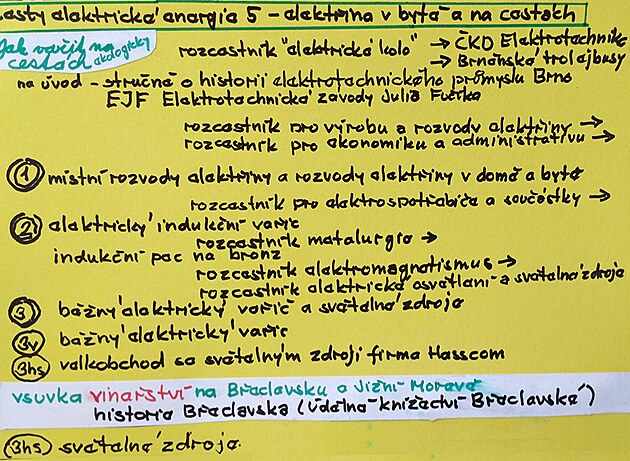 cesty elektrické energie 5 – elektřina v bytě a na cestách
jak vařit na
cestách ekologicky
rozcestník "elektrické kolo" → ČKD Elektrotechnika
→ Brněnské trolejbusy
na úvod – stručně o historii elektrotechnického průmyslu Brno
EJF Elektrotechnické závody Julia Fučíka
rozcestník pro výrobu a rozvody elektřiny →
rozcestník pro ekonomiku a administrativu →
1 místní rozvody elektřiny a rozvody elektřiny v domě a bytě
rozcestník pro elektrospotřebiče a součástky →
2 elektrický indukční vařič
rozcestník metalurgie →
indukční pec na bronz
rozcestník elektromagnetismus →
rozcestník elektrické osvětlení a světelné zdroje
3 běžný elektrický vařič a světelné zdroje
3v běžný elektrický vařič
3hs velkobchod se světelnými zdroji firma Hasscom
vsuvka vinařství na Břeclavsku a Jižní Moravě
historie Břeclavska (údělné knížectví Břeclavské)
3hs světelné zdroje